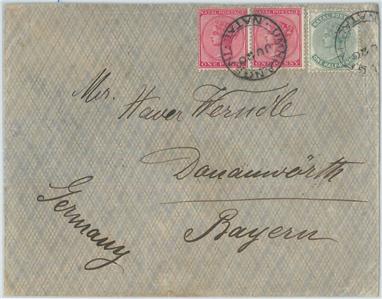 NATAL POSTAGE NATAL POSTAGE NATAL POSTAGE
ONE PENNY ONE PENNY ONE HALFPENNY
NATAL
JU 20
Mr. Xaver Werndle
Donauwörth
Bayern
Germany